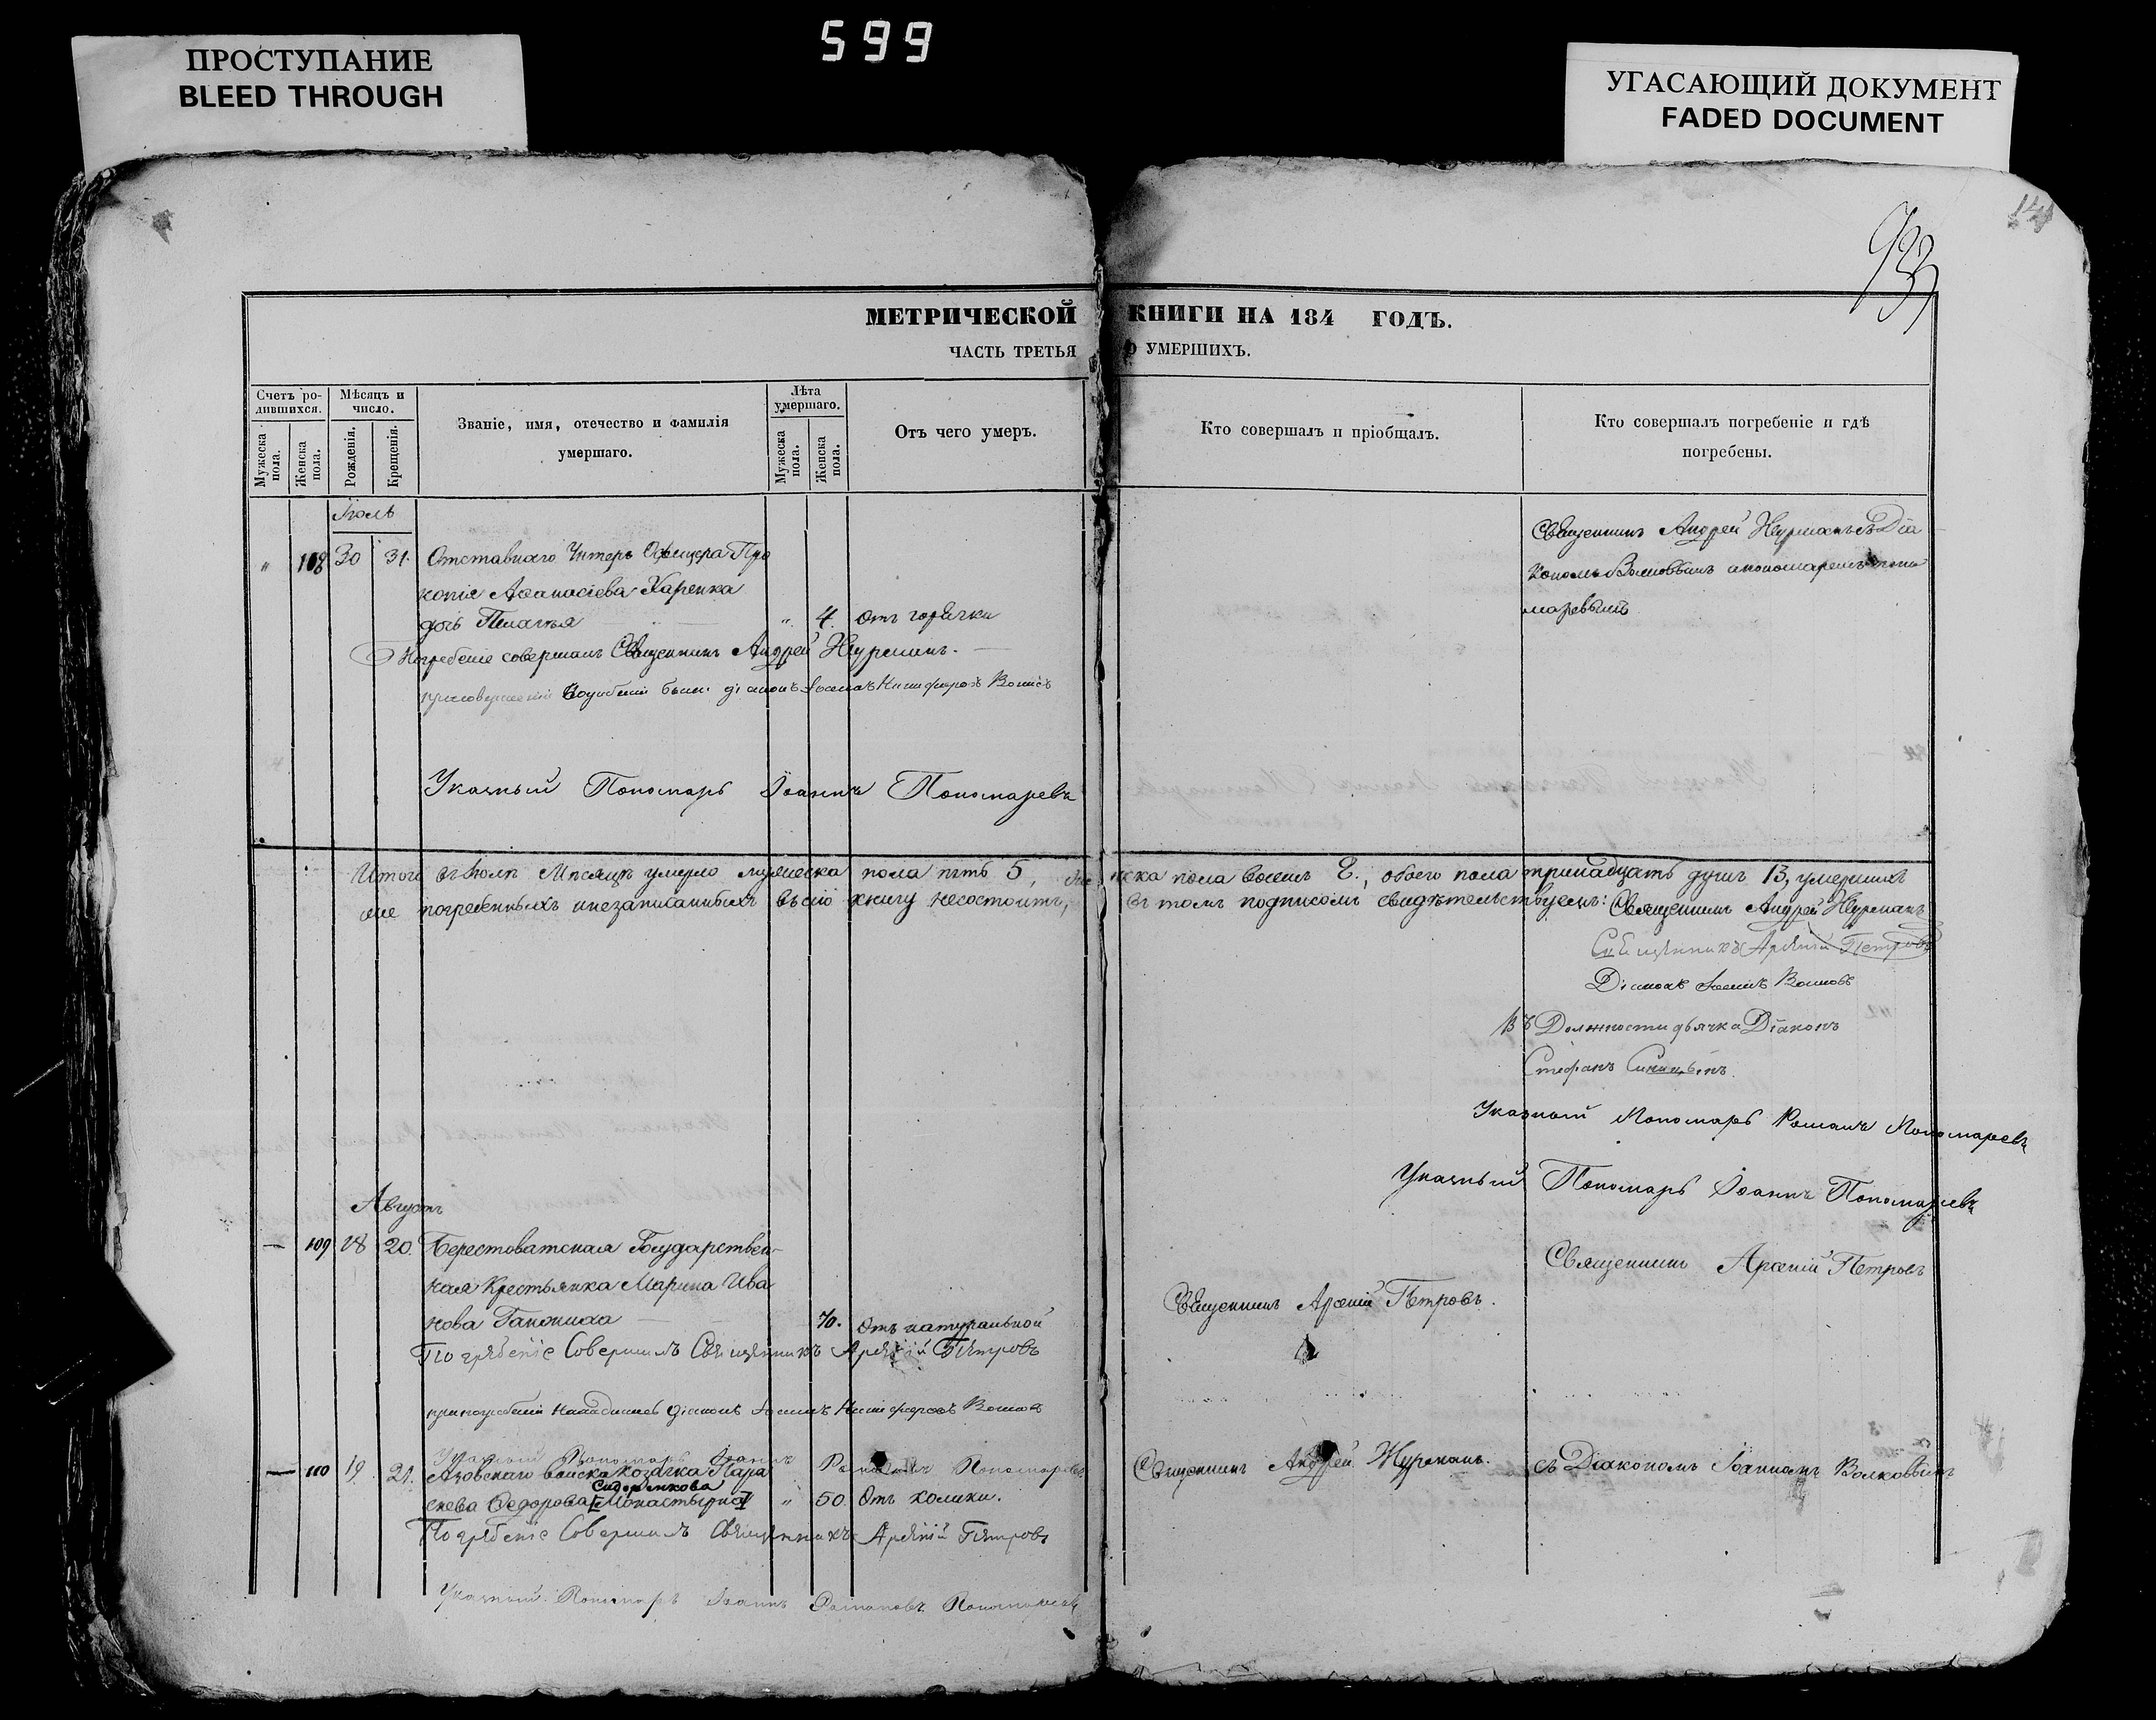 599
ПРОСТУПАНИЕ
BLEED THROUGH
УГАСАЮЩИЙ ДОКУМЕНТ
FADED DOCUMENT
933
МЕТРИЧЕСКОЙ КНИГИ НА 184 ГОДЪ.
ЧАСТЬ ТРЕТЬЯ О УМЕРШИХЪ.
Счетъ ро-
дившихся.
Мужеска пола.
Женска пола.
Мѣсяцъ и
число.
Рожденія.
Крещенія.
Званіе, имя, отечество и фамилія
умершаго.
Лѣта
умершаго.
Мужеска пола.
Женска пола.
Отъ чего умеръ.
Кто совершалъ и пріобщалъ.
Кто совершалъ погребеніе и гдѣ
погребены.
Іюль
" 108 30 31. Отставнаго Унтеръ Офицера Про
копія Аѳанасіева Харенка
дочь Пелагія " 4. Отъ горячки
Священникъ Андрей Журманъ съ Діа
кономъ Волковымъ
Погребеніе совершалъ Священникъ Андрей Журманъ.
Указный Пономарь Іоаннъ Пономаревъ
Итого въ Іюлѣ Мѣсяцѣ умерло мужеска пола пять 5, женска пола восемь 8., обоего пола тринадцать душъ 13, умершихъ
не погребенныхъ и незаписанныхъ въ сію книгу несостоитъ, въ томъ подписомъ свидѣтельствуемъ: Священникъ Андрей Журманъ
Священникъ Арсеній Петровъ
Діаконъ Іоаннъ Волковъ
Въ Должности дьячка Діаконъ
Стефанъ Синицынъ.
Указный Пономарь Романъ Пономаревъ
Указный Пономарь Іоаннъ Пономаревъ
Августъ
— 109 18 20. Берестоватская Государствен-
ная Крестьянка Марина Ива
нова Гапониха 70. Отъ натуральной
Священникъ Арсеній Петровъ.
Священникъ Арсеній Петровъ
Погребеніе Совершилъ Священникъ Арсеній Петровъ
при погребеніи находился діаконъ Іоаннъ Никифоровъ Волковъ
Указный Пономарь Іоаннъ Романовъ Пономаревъ
— 110 19 21. Азовскаго войска козачка Пара
Сидоренкова
скева Ѳедорова [Монастырна] " 50. Отъ колики.
Священникъ Андрей Журманъ.
съ Діакономъ Іоанномъ Волковымъ
Погребеніе Совершилъ Священникъ Арсеній Петровъ
Указный Пономарь Іоаннъ Романовъ Пономаревъ